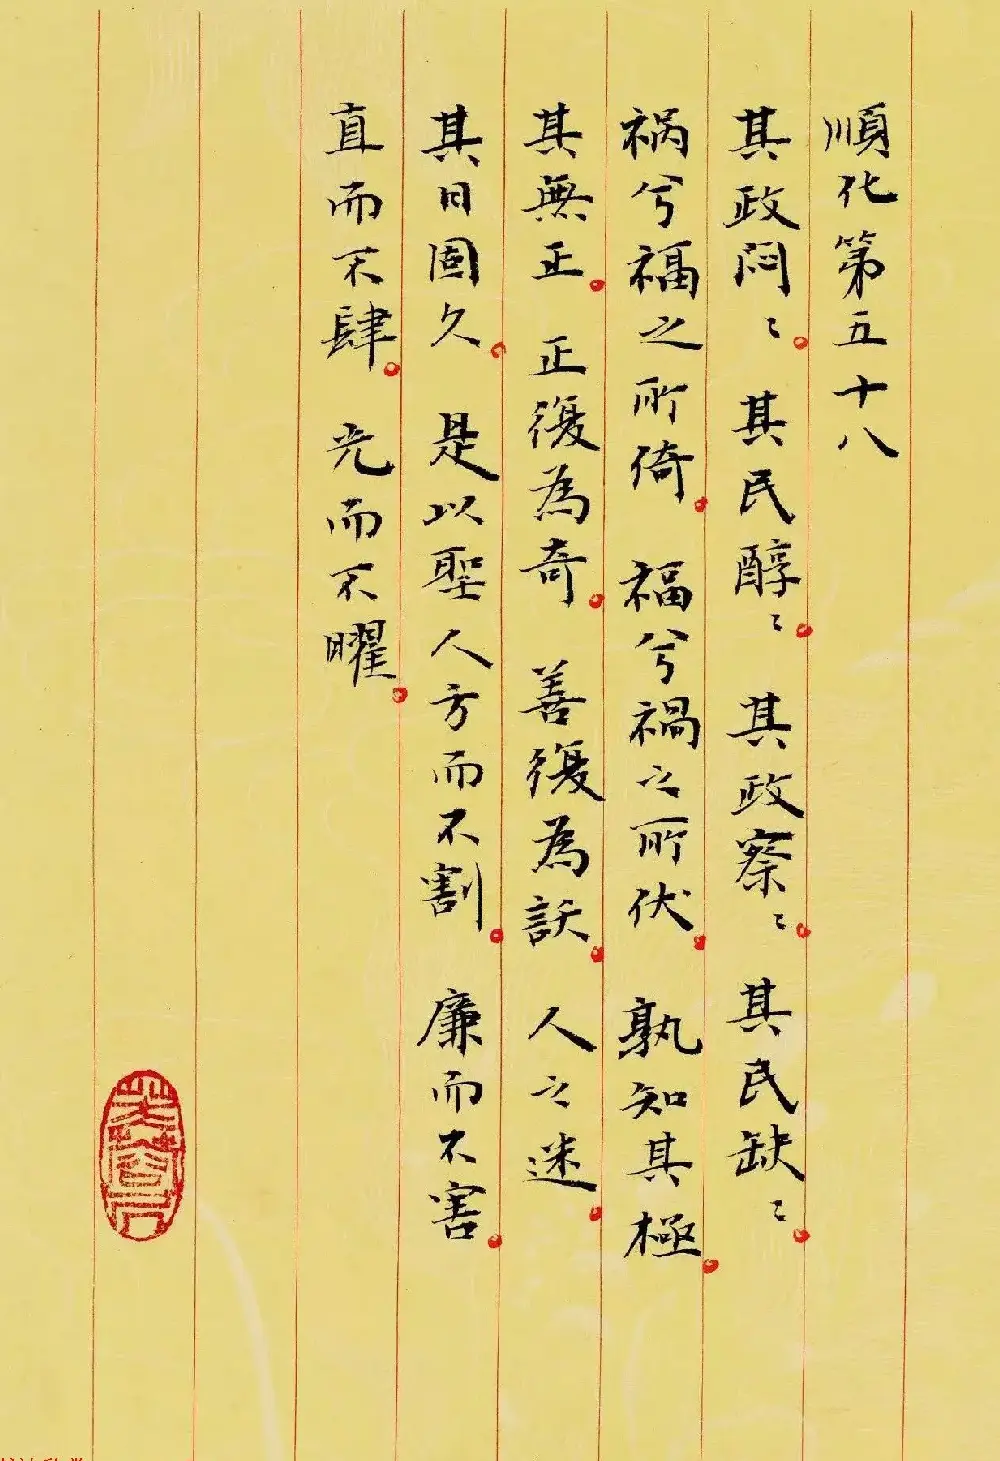 順化第五十八
其政悶〻。其民醇〻。其政察〻。其民缺〻。
禍兮福之所倚。福兮禍之所伏。孰知其極
其無正。正復為奇。善復為訞。人之迷。
其日固久。是以聖人方而不割。廉而不害
直而不肆。光而不曜。